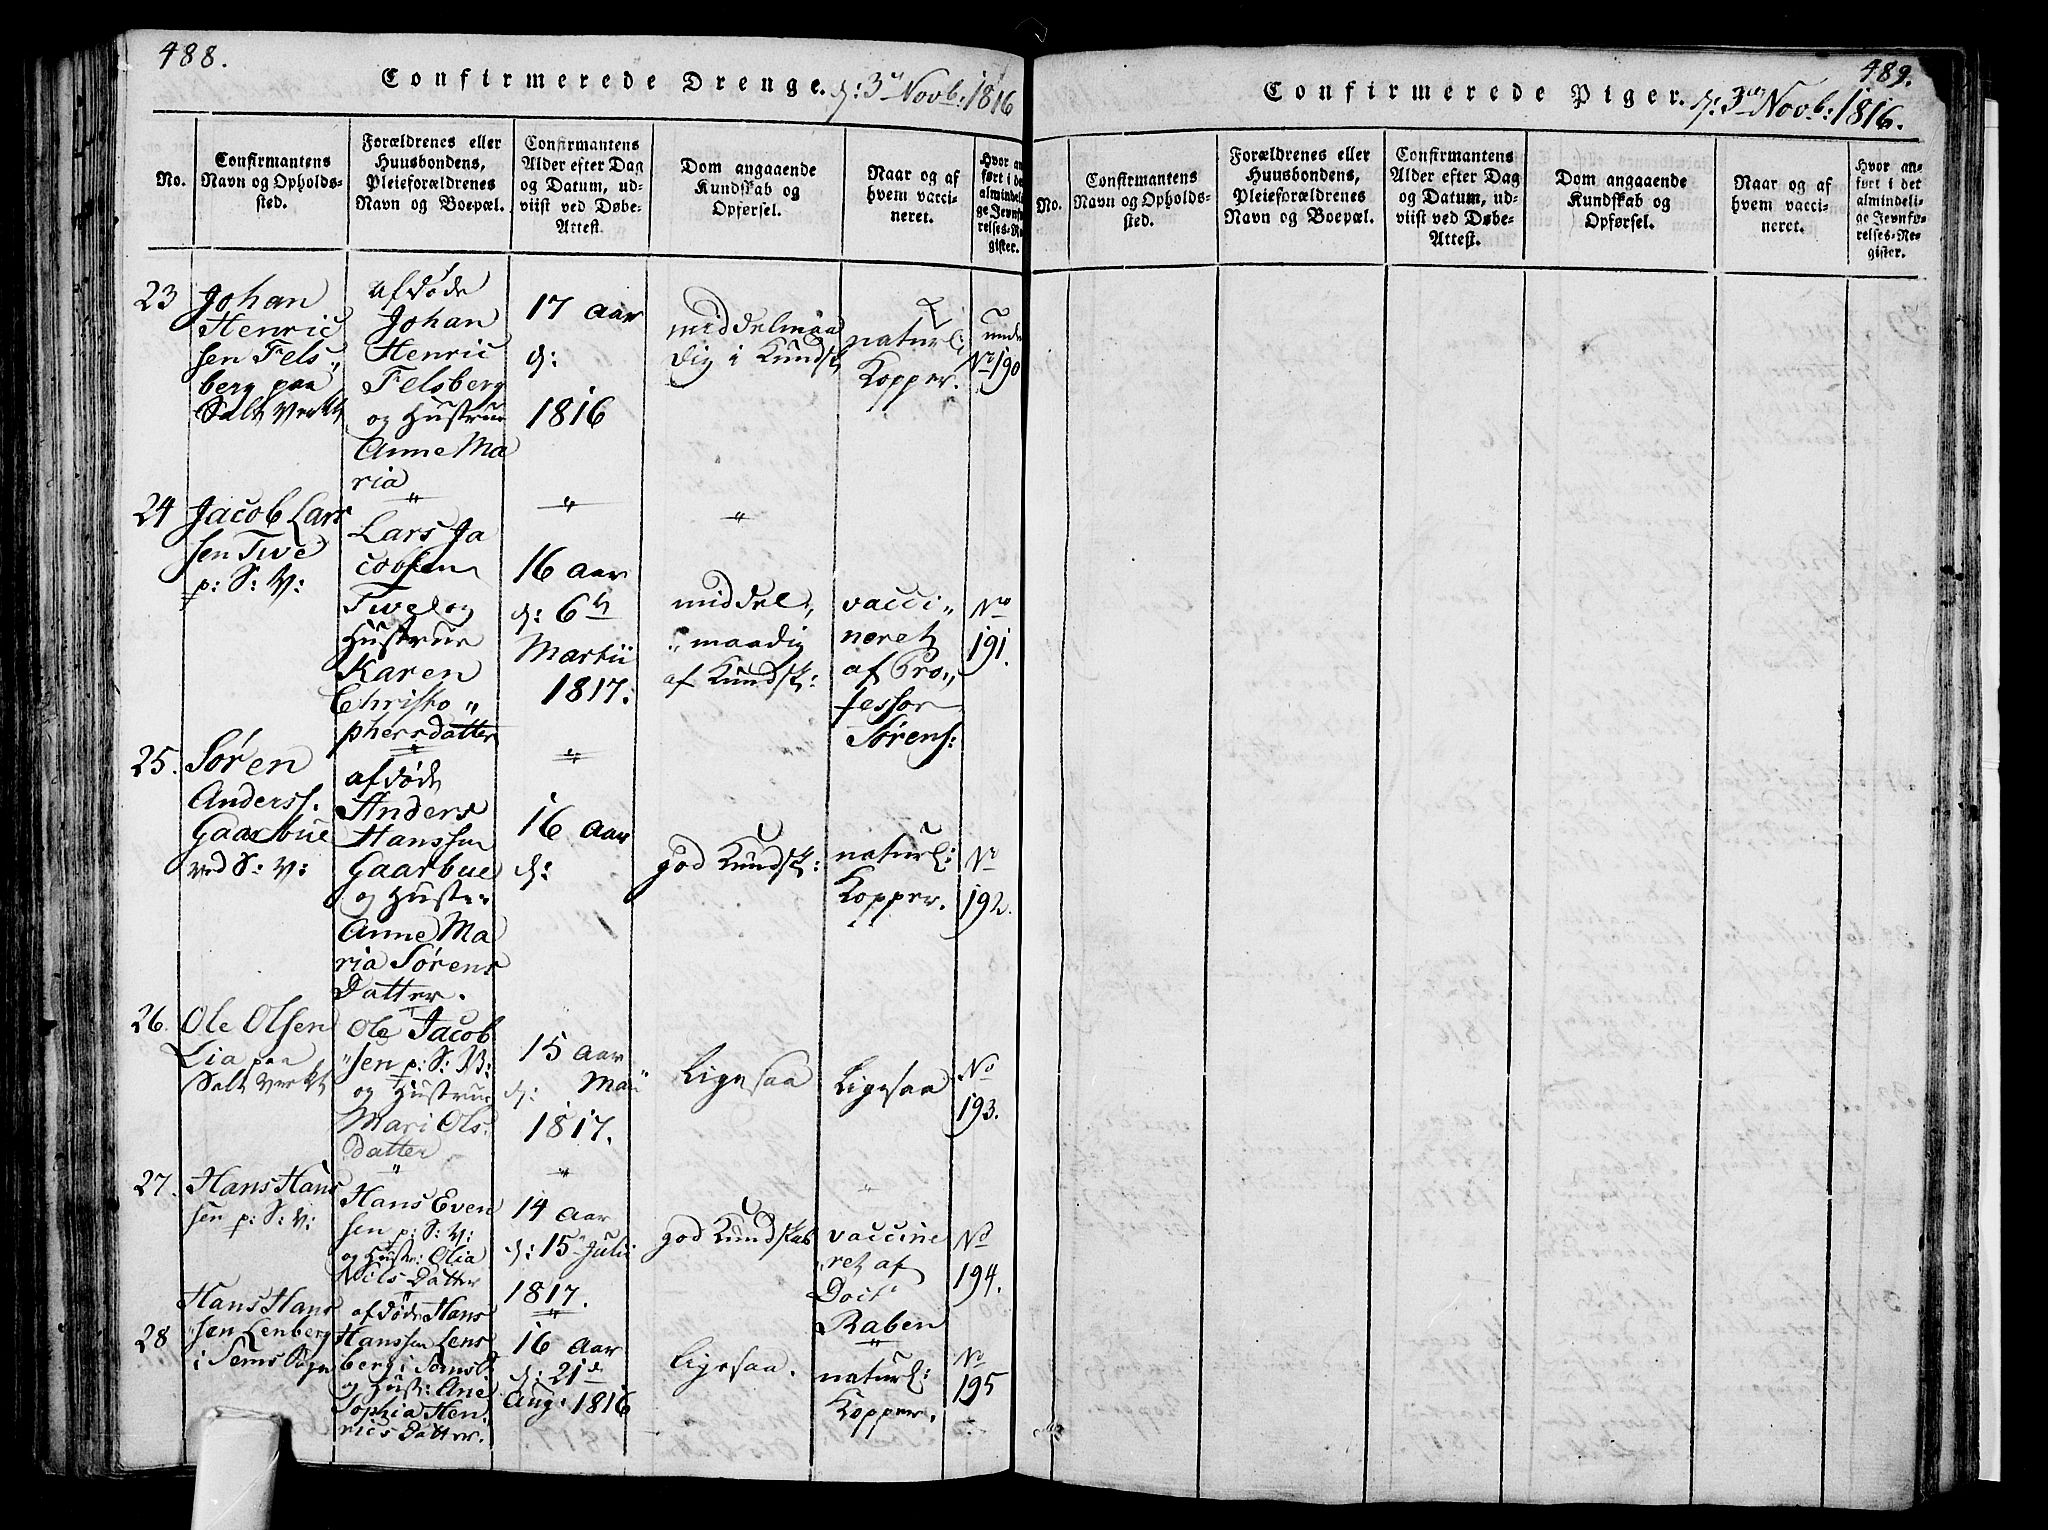 488.
Confirmerede Drenge. d: 3die Novb: 1816
No.
Confirmantens
Navn og Opholds-
sted.
Forældrenes eller
Huusbondens,
Pleieforældrenes
Navn og Boepæl.
Confirmantens
Alder efter Dag
og Datum, ud-
viist ved Døbe-
Attest.
Dom angaaende
Kundskab og
Opførsel.
Naar og af
hvem vacci-
neret.
Hvor an-
ført i det
almindeli-
ge Jevnfø-
relses-Re-
gister.
23
Johan
Henric
sen Fels„
berg paa
Salt Verket
afdøde
Johan
Henric
Felsberg
og Hustrue
Anne Ma
ria
17 Aar
d:
1816
middelmaa
dig i Kundsk
naturl:
Kopper.
unde
No 190
24
Jacob Lars
sen Twe
p: S: V:
Lars Ja
cobsen
Twe og
Hustrue
Karen
Christo „
phersdatter
16 Aar
d: 6te
Martii
1817:
middel„
„maadig
af Kundsk:
vacci„
neret
af Pro„
fessor
Sørens:
No
191.
25.
Søren
Anderss.
Gaarbue
ved S: V:
afdøde
Anders
Hanssen
Gaarbue
og Hustr:
Anne Ma
ria Sørens
Datter.
16 Aar
d:
god Kundsk:
naturl:
Kopper.
No
192.
26.
Ole Olsen
Lia paa
Salt Verket
Ole Jacob
„sen p: S: V:
og Hustrue
Mari Ols
datter
15 Aar
d: Maii
1817.
Ligesaa
Ligesaa
No
193.
27.
Hans Hans
sen p: S: V:
Hans Even
sen p: S: V:
og Hustr: Olia
Nils Datter
14 Aar
d: 15 Julii
1817.
god Kundskab
vaccine
„ret af
Doctr
Raben
No
194.
28
Hans Hans
„sen Lenberg
i Sems Sogn
afdøde Hans
Hanssen Lens
berg i Semsl:
og Hust: Ane
Sophia Hen
rics Datter.
16 Aar
d: 21de
Aug: 1816
Ligesaa.
naturl:
Kopper.
No
195
489.
Confirmerede Piger. d: 3die Novb: 1816.
No.
Confirmantens
Navn og Opholds-
sted.
Forældrenes eller
Huusbondens,
Pleieforældrenes
Navn og Boepæl.
Confirmantens
Alder efter Dag
og Datum, ud-
viist ved Døbe-
Attest.
Dom angaaende
Kundskab og
Opførsel.
Naar og af
hvem vacci-
neret.
Hvor an-
ført i det
almindeli-
ge Jevnfø-
relses-Re-
gister.